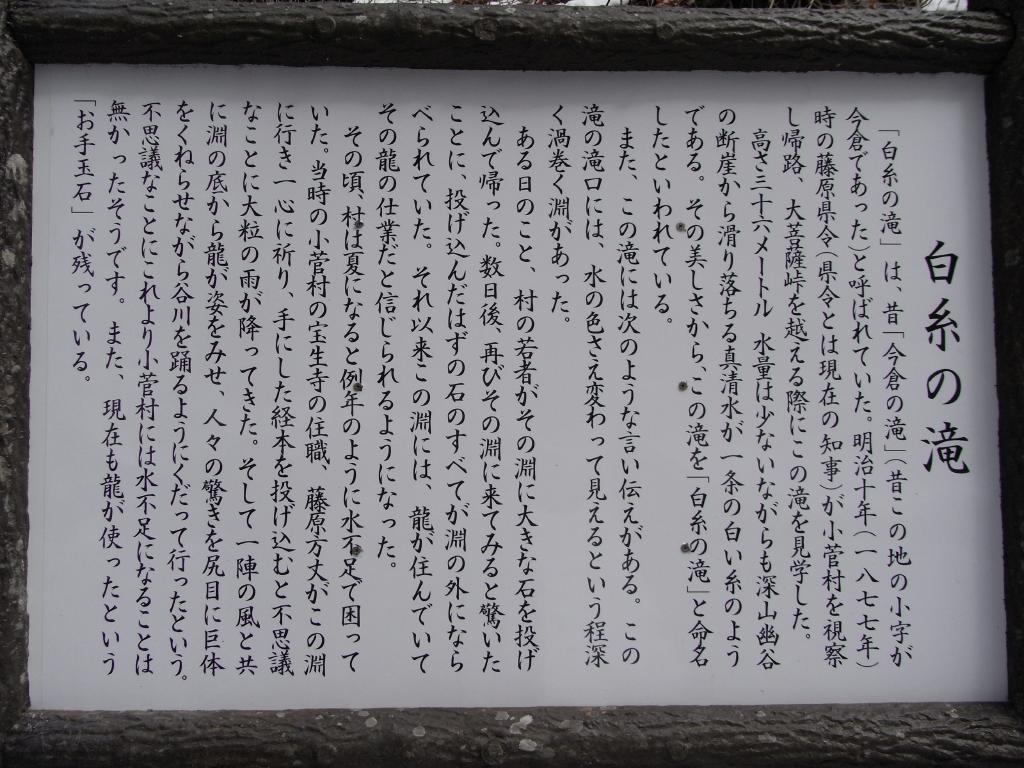 白糸の滝
「白糸の滝」は、昔「今倉の滝」(昔この地の小字が
今倉であった)と呼ばれていた。明治十年(一八七七年)
時の藤原県令(県令とは現在の知事)が小菅村を視察
し帰路、大菩薩峠を越える際にこの滝を見学した。
高さ三十六メートル 水量は少ないながらも深山幽谷
の断崖から滑り落ちる真清水が一条の白い糸のよう
である。その美しさから、この滝を「白糸の滝」と命名
したといわれている。
また、この滝には次のような言い伝えがある。この
滝の滝口には、水の色さえ変わって見えるという程深
く渦巻く淵があった。
ある日のこと、村の若者がその淵に大きな石を投げ
込んで帰った。数日後、再びその淵に来てみると驚いた
ことに、投げ込んだはずの石のすべてが淵の外になら
べられていた。それ以来この淵には、龍が住んでいて
その龍の仕業だと信じられるようになった。
その頃、村は夏になると例年のように水不足で困って
いた。当時の小菅村の宝生寺の住職、藤原方丈がこの淵
に行き一心に祈り、手にした経本を投げ込むと不思議
なことに大粒の雨が降ってきた。そして一陣の風と共
に淵の底から龍が姿をみせ、人々の驚きを尻目に巨体
をくねらせながら谷川を踊るようにくだって行ったという。
不思議なことにこれより小菅村には水不足になることは
無かったそうです。また、現在も龍が使ったという
「お手玉石」が残っている。